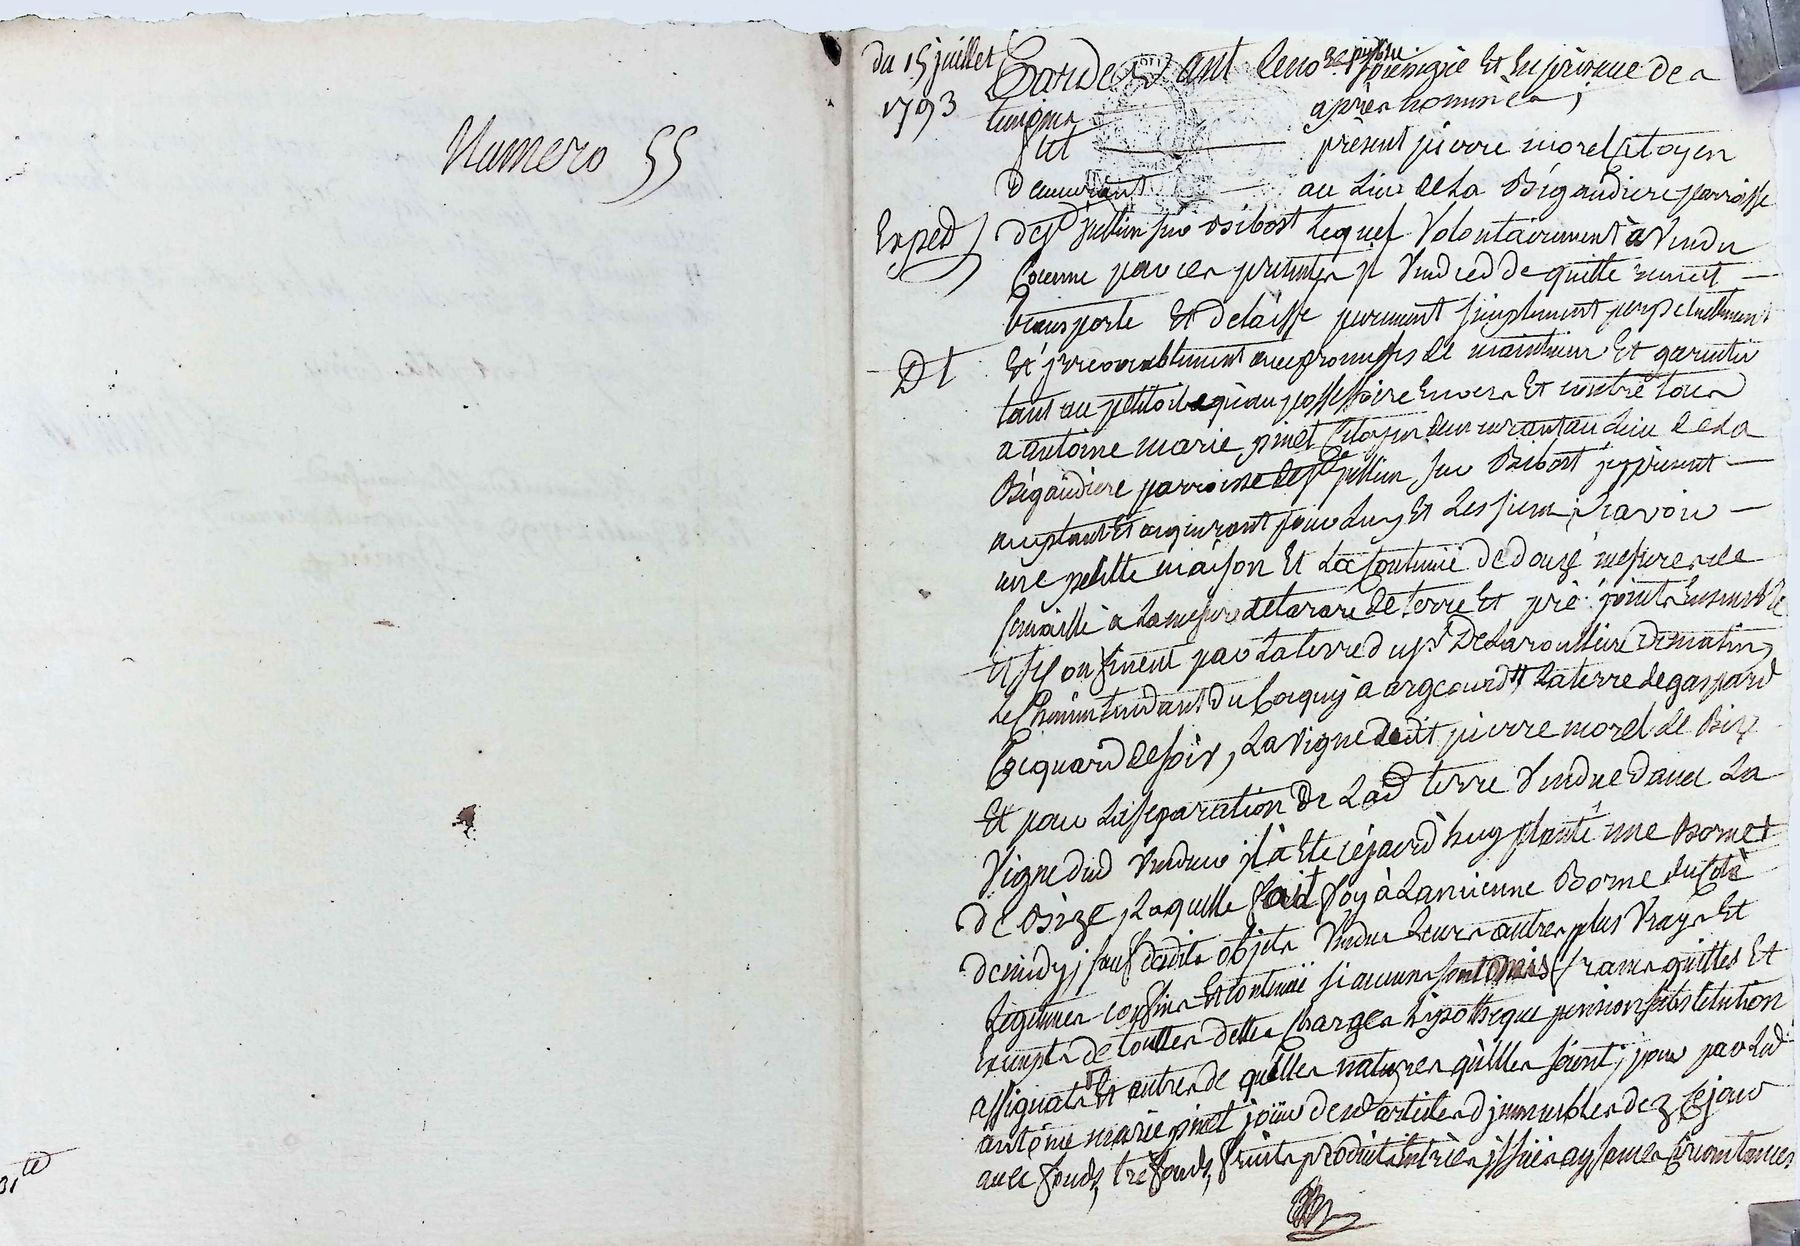 Numero 55
du 15 juillet
1793
Exped
Dt
Pardevant le no.re public soussigné Et En présence des
temoins après nommés ;
fut présent pierre morel Citoyen
demeurant au Lieu de La Bigaudiere parroisse
de st jullien sur Bibost Lequel Volontairement à Vendu
Comme par ces presentes il Vend Cedde quitte remet
transporte Et délaisse purement simplement perpetuellement
Et jrrevocablement avec promesses de maintenir Et garentir
tant au petitoire qu'au possessoire Envers Et contre tous
a antoine marie pinet Citoyen demeurant au Lieu de La
Bigaudiere parroisse de st jullien sur Bibost jcy présent
acceptant Et acquerant pour Luy Et Les siens ; savoir
une petitte maison Et La Contenüe de douze mesures de
semaille à La mesure de tarare de terre Et pré joints Ensemble
Et se Confinent par La terre du sr DeLaroulliere de matin
Le Chemin tendant du Coquy a argeoud La terre de gaspard
Coquard de soir, La Vigne dudit pierre morel de Bize
Et pour La separation de Lad terre Vendue d'avec La
Vigne dud Vendeur jl à Eté cejourd'huy planté une Borne
de Bize Laquelle fait foy à Lancienne Borne du Coté
de midy ; sauf desdits objets Vendus Leurs autres plus Vrays Et
Legitimes confins Et contenüe si aucuns sont omis francs quittes Et
Exempts de touttes dettes Charges hipotheque pension substitution
assignats Et autres de quelles natures qu'elles soient ; pour par Led
antoine marie pinet joüir desd articles d'jmmeubles dez Ce jour
avec fonds, tres fonds, fruits produits Entrées jssües aysances Circonstances